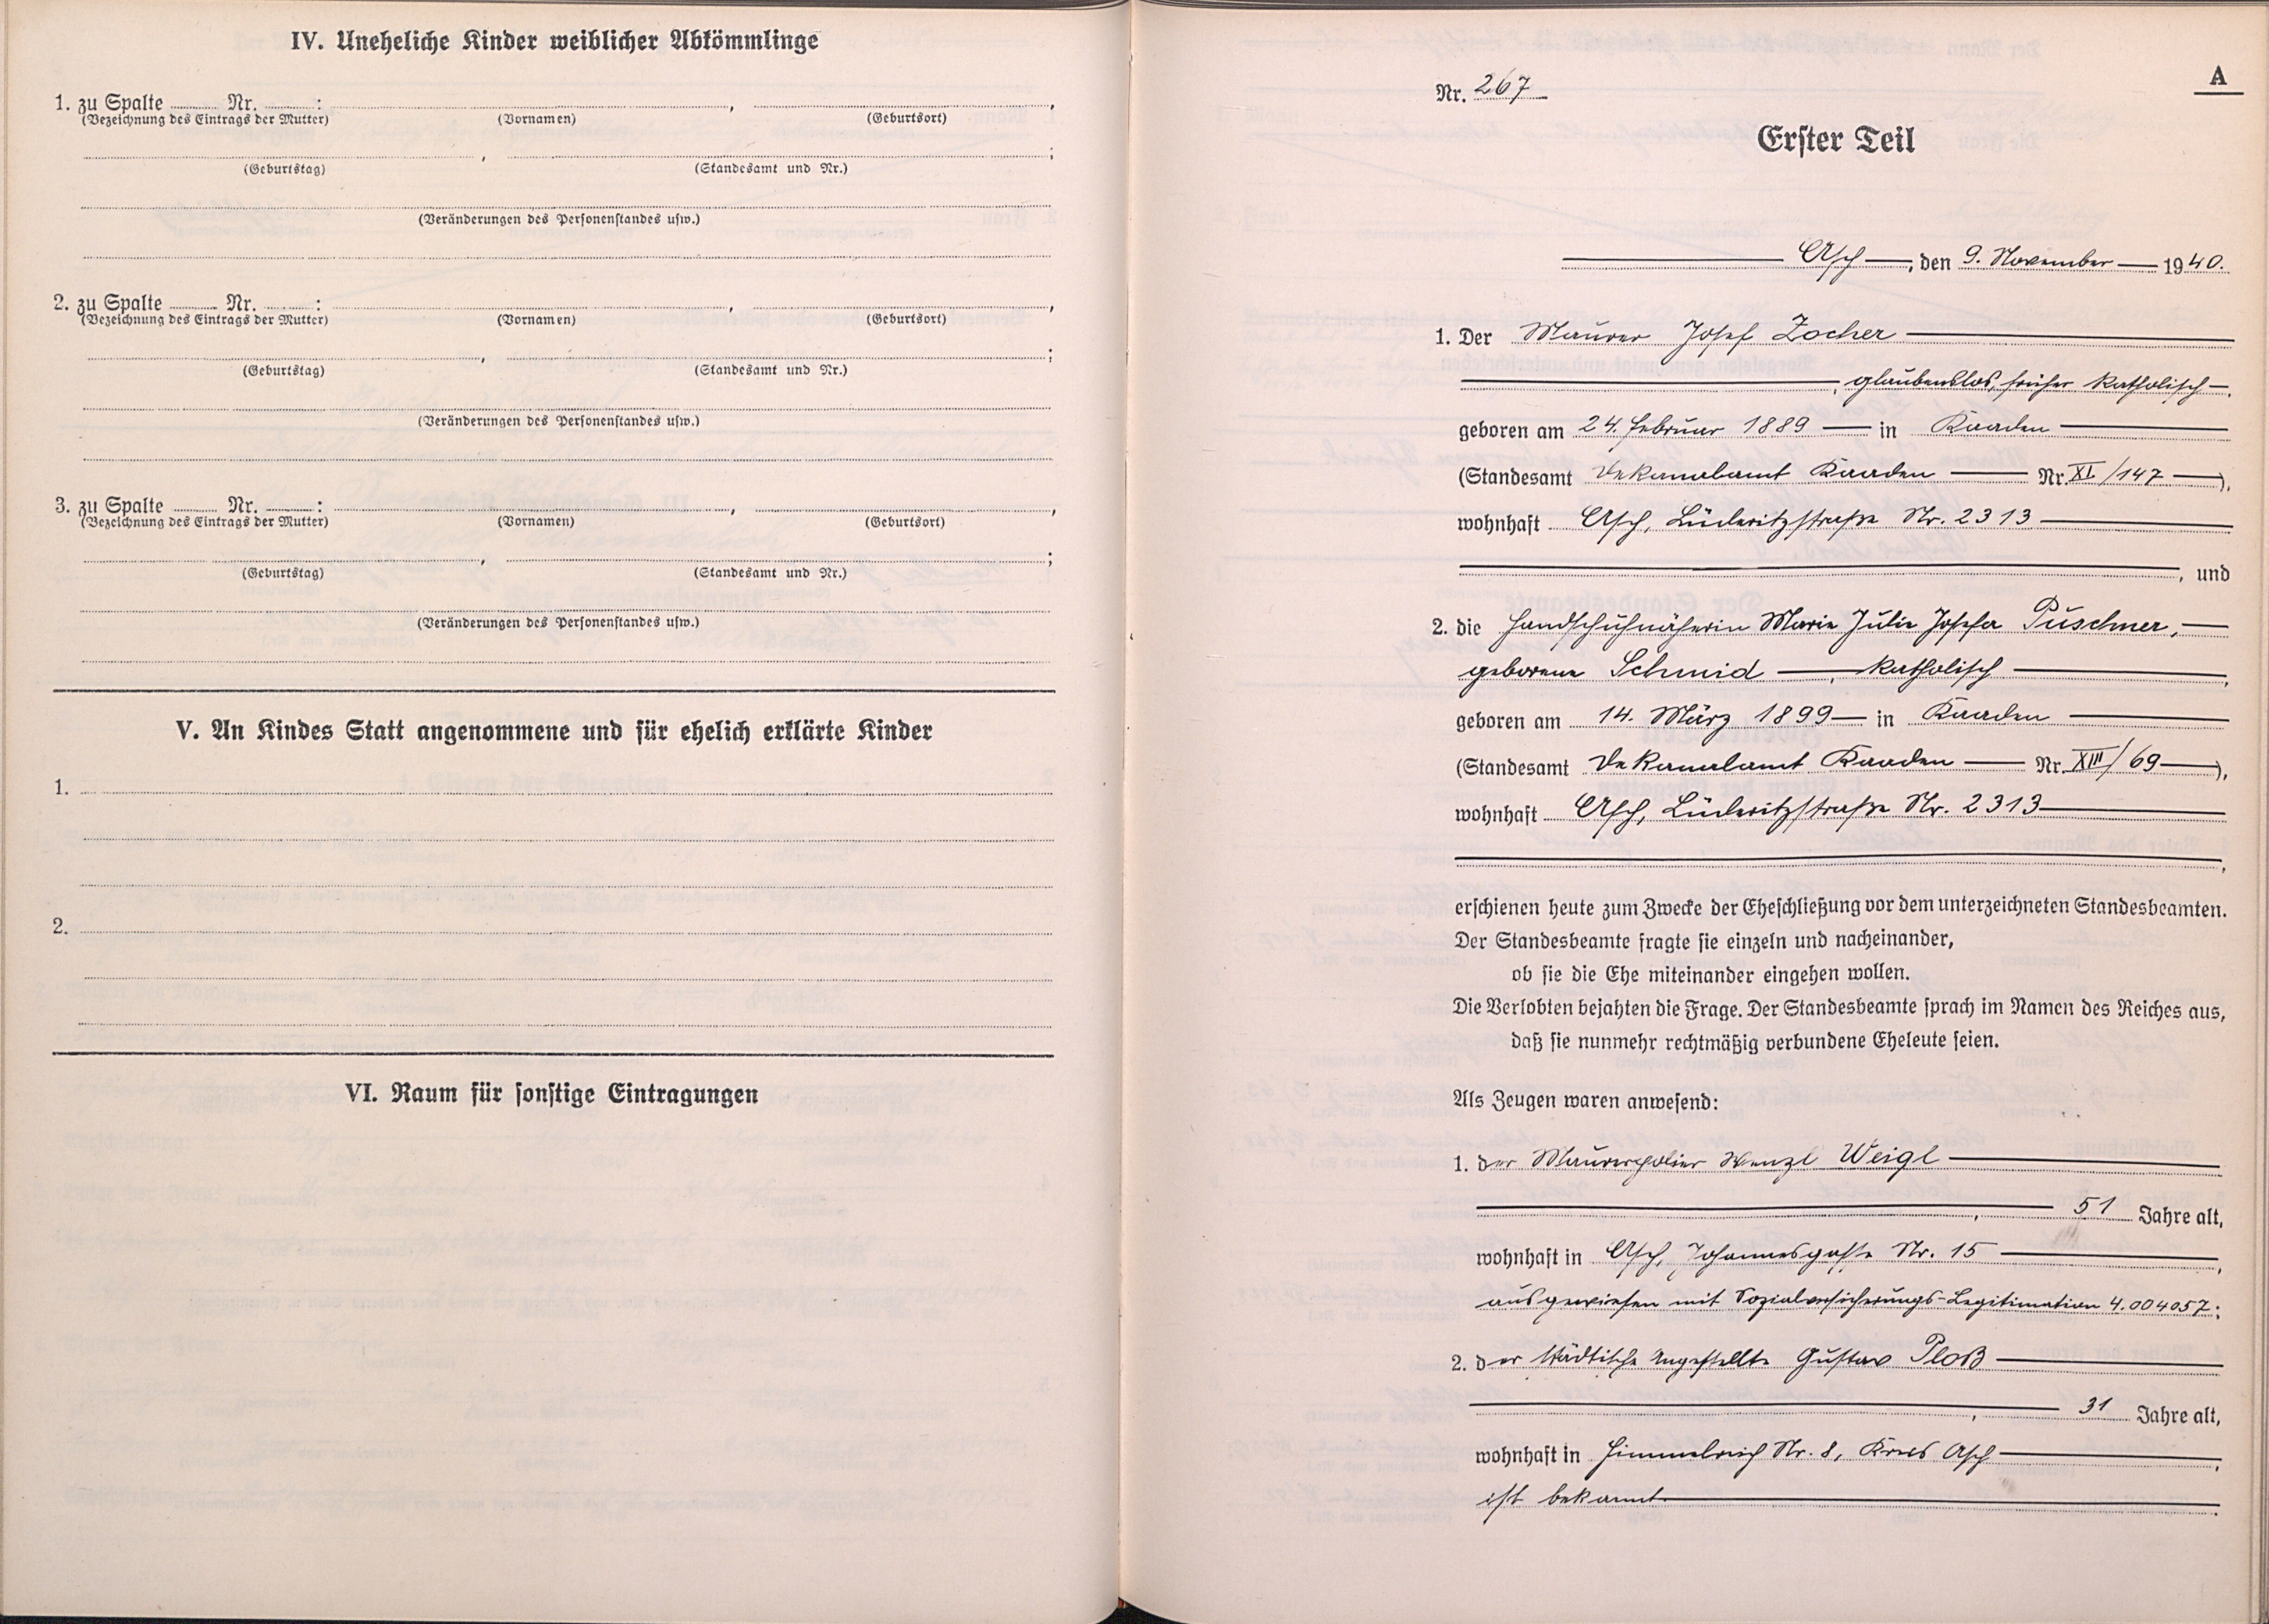 IV. Uneheliche Kinder weiblicher Abkömmlinge
1. zu Spalte Nr. : , ,
(Bezeichnung des Eintrags der Mutter) (Vornamen) (Geburtsort)
, ;
(Geburtstag) (Standesamt und Nr.)
(Veränderungen des Personenstandes usw.)
2. zu Spalte Nr. : , ,
(Bezeichnung des Eintrags der Mutter) (Vornamen) (Geburtsort)
, ;
(Geburtstag) (Standesamt und Nr.)
(Veränderungen des Personenstandes usw.)
3. zu Spalte Nr. : , ,
(Bezeichnung des Eintrags der Mutter) (Vornamen) (Geburtsort)
, ;
(Geburtstag) (Standesamt und Nr.)
(Veränderungen des Personenstandes usw.)
V. An Kindes Statt angenommene und für ehelich erklärte Kinder
1.
2.
VI. Raum für sonstige Eintragungen
A
Nr. 267
Erster Teil
Asch, den 9. November 1940.
1. Der Maurer Josef Zocher
, glaubenslos, früher katholisch,
geboren am 24. Februar 1889 in Kaaden
(Standesamt Dekanalamt Kaaden Nr. XI/147),
wohnhaft Asch, Lüderitzstraße Nr. 2313
, und
2. die Handschuhnäherin Marie Julie Josefa Püschner,
geborene Schmid, katholisch,
geboren am 14. März 1899 in Kaaden
(Standesamt Dekanalamt Kaaden Nr. XIII/69),
wohnhaft Asch, Lüderitzstraße Nr. 2313
,
erschienen heute zum Zwecke der Eheschließung vor dem unterzeichneten Standesbeamten.
Der Standesbeamte fragte sie einzeln und nacheinander,
ob sie die Ehe miteinander eingehen wollen.
Die Verlobten bejahten die Frage. Der Standesbeamte sprach im Namen des Reiches aus,
daß sie nunmehr rechtmäßig verbundene Eheleute seien.
Als Zeugen waren anwesend:
1. der Maurerpolier Wenzl Weigl
, 51 Jahre alt,
wohnhaft in Asch, Johannesgasse Nr. 15,
ausgewiesen mit Sozialversicherungs-Legitimation 4.004057;
2. der städtische Angestellte Gustav Ploß
, 31 Jahre alt,
wohnhaft in Himmelreich Nr. 8, Kreis Asch,
ist bekannt.